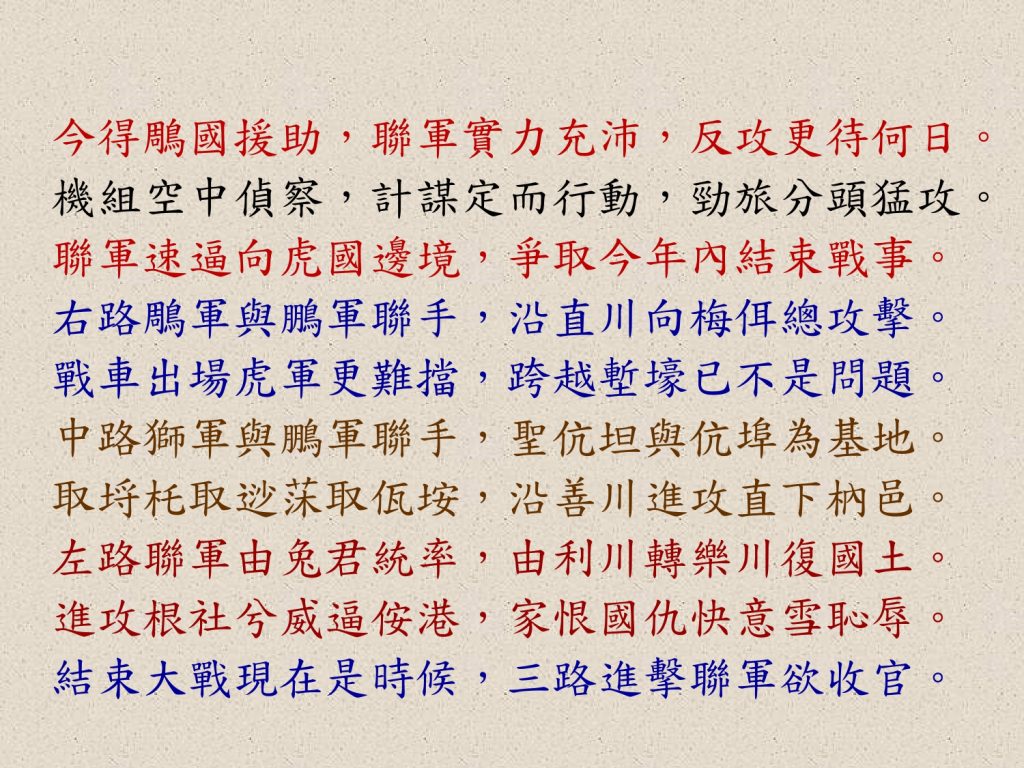 今得鵰國援助，聯軍實力充沛，反攻更待何日。
機組空中偵察，計謀定而行動，勁旅分頭猛攻。
聯軍速逼向虎國邊境，爭取今年內結束戰事。
右路鵰軍與鵬軍聯手，沿直川向梅佴總攻擊。
戰車出場虎軍更難擋，跨越塹壕已不是問題。
中路獅軍與鵬軍聯手，聖伉坦與伉埠為基地。
取埒杔取逤莯取佤垵，沿善川進攻直下枘邑。
左路聯軍由兔君統率，由利川轉樂川復國土。
進攻根社兮威逼侒港，家恨國仇快意雪恥辱。
結束大戰現在是時候，三路進擊聯軍欲收官。